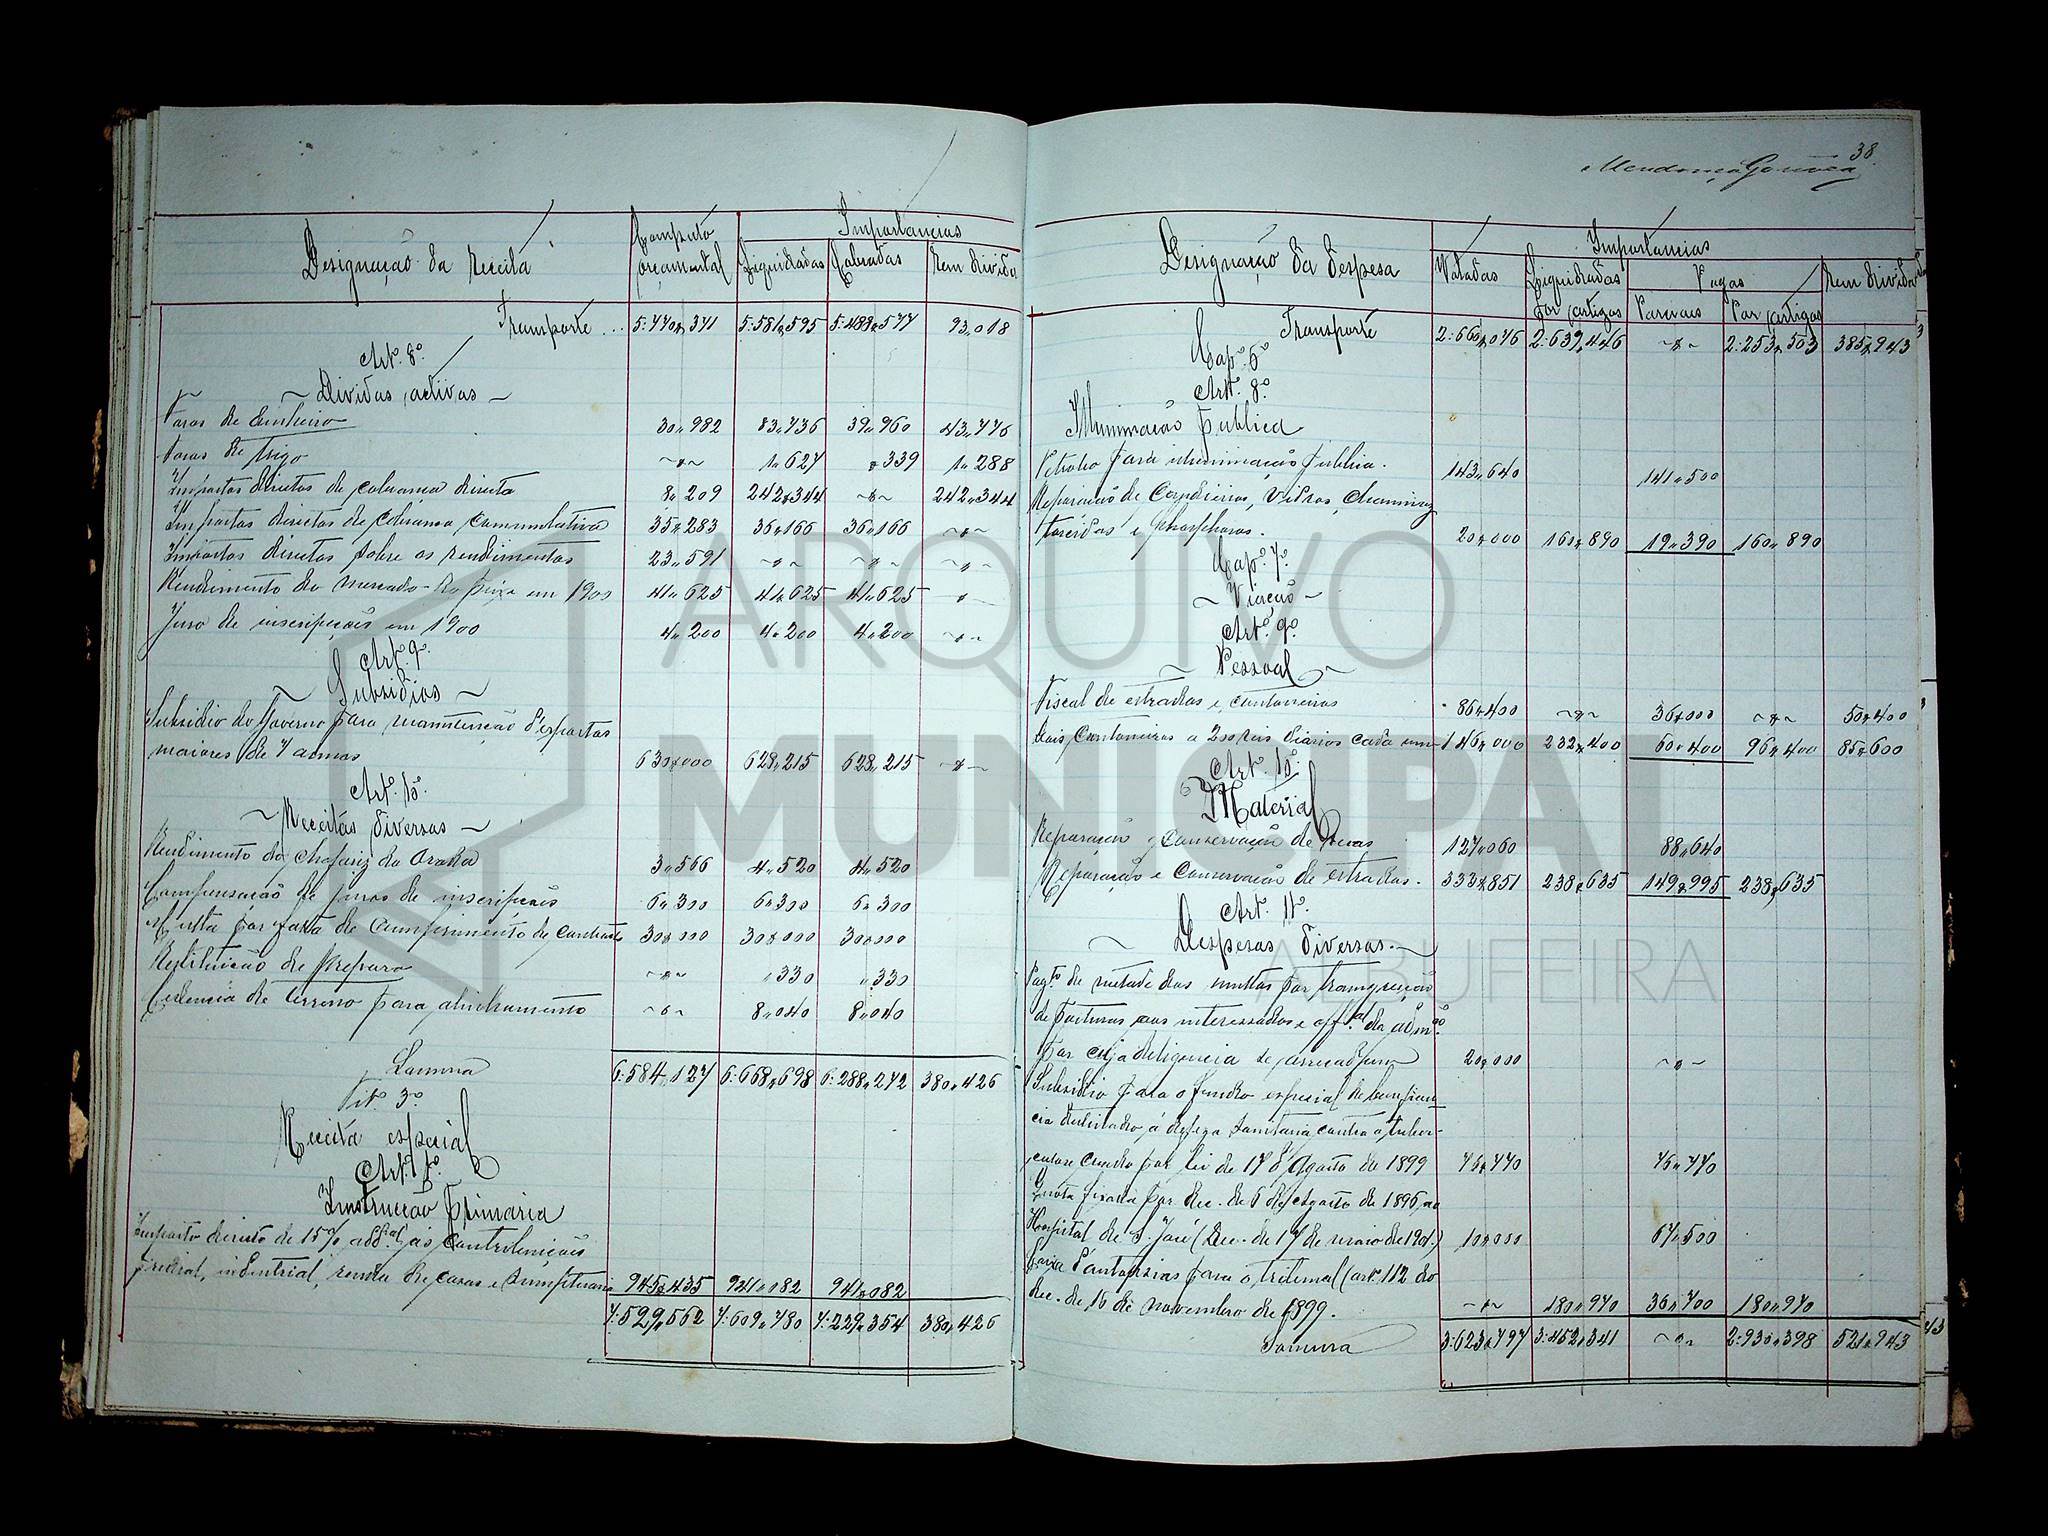 Designação da Receita Computo orçamental Importancias
Liquidadas Cobradas Em divida
Transporte ... 5:470,371 5:581,595 5:488,577 93,018
Art.º 8.º
~ Dividas activas ~
Foros de dinheiro 30,982 83,736 39,960 43,776
Foros de trigo ~"~ 1,627 ,339 1,288
Impostos directos de cobrança directa 8,209 242,344 ~"~ 242,344
Impostos directos de cobrança cumulativa 35,283 36,166 36,166 ~"~
Impostos directos sobre os rendimentos 23,591 ~"~ ~"~ ~"~
Rendimento do mercado do peixe em 1900 41,625 41,625 41,625 "
Juro de inscripções em 1900 4,200 4,200 4,200 ~"~
Art.º 9.º
~ Subsidios ~
Subsidio do Governo para manutenção d'expostos
maiores de 7 annos 630,000 628,215 628,215 ~"~
Art.º 10.º
~ Receitas diversas ~
Rendimento do chafariz da Orada 3,566 4,520 4,520
Compensação de juros de inscripções 6,300 6,300 6,300
Multa por falta de cumprimento de contracto 30,000 30,000 30,000
Restituição de preparo ~"~ ,330 ,330
Cedencia de terreno para alinhamento ~"~ 8,040 8,040
Somma 6:584,127 6:668,698 6:288,272 380,426
Tit.º 3.º
Receita especial
Art.º 1.º
Instrucção primaria
Imposto directo de 15% add.al ás contribuições
predial, industrial, renda de casas e sumptuaria 945,435 941,082 941,082
7:529,562 7:609,780 7:229,354 380,426
38
Mendonça Gouvea
Designação da despesa Importancias
Votadas Liquidadas por artigos Pagas Em divida
Parciais Por artigos
Transporte 2:660,076 2:639,446 ~"~ 2:253,503 385,943
Cap.º 6.º
Art.º 8.º
Illuminação publica
Petroleo para illuminação publica. 143,640 141,500
Reparação de Candieiros, vidros, chaminés
torcidas e phosphoros. 20,000 160,890 19,390 160,890
Cap.º 7.º
~ Viação ~
Art.º 9.º
~ Pessoal ~
Fiscal de estradas e cantoneiros 86,400 ~"~ 36,000 ~"~ 50,400
Dois cantoneiros a 200 reis diarios cada um 146,000 232,400 60,400 96,400 85,600
Art.º 10.º
Material
Reparação e conservação de 127,060 88,640
Reparação e conservação de estradas. 333,851 238,635 149,995 238,635
Art.º 11.º
~ Despesas diversas. ~
Pag.to de metade das multas por transgressão
de posturas aos interessados e off.al da adm.ão
por cuja deligencia se arrecadarem 20,000 ~"~
Subsidio para o fundo especial de beneficen-
cia destinado á defeza sanitaria contra a tuber-
culose creado por lei de 17 d'Agosto de 1899 76,770 76,770
Quota fixada por dec. de 6 de Agosto de 1896, ao
Hospital de S. José (Dec. de 17 de maio de 1901.) 10,000 67,500
para o tribunal (art. 112 do
dec. de 16 de novembro de 1899. ~"~ 180,970 36,700 180,970
Somma 3:623,797 3:452,341 ~"~ 2:930,398 521,943
ARQUIVO
MUNICIPAL
ALBUFEIRA